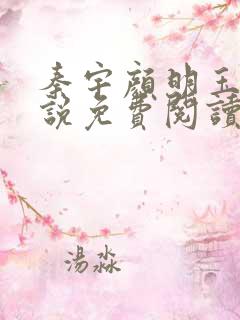 秦宇顏明玉
說免費閱讀
湯淼